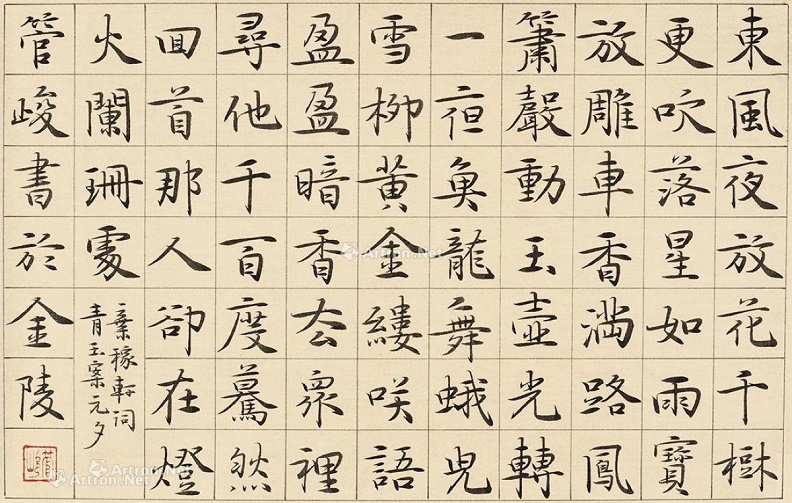 東風夜放花千樹
更吹落星如雨寶
放雕車香滿路鳳
簫聲動玉壺光轉
一夜魚龍舞蛾兒
雪柳黃金縷咲語
盈盈暗香去眾裡
尋他千百度驀然
回首那人卻在燈
火闌珊處
辛稼軒詞
青玉案元夕
管峻書於金陵
Artron.Net
Artron.Net
Artron.Net